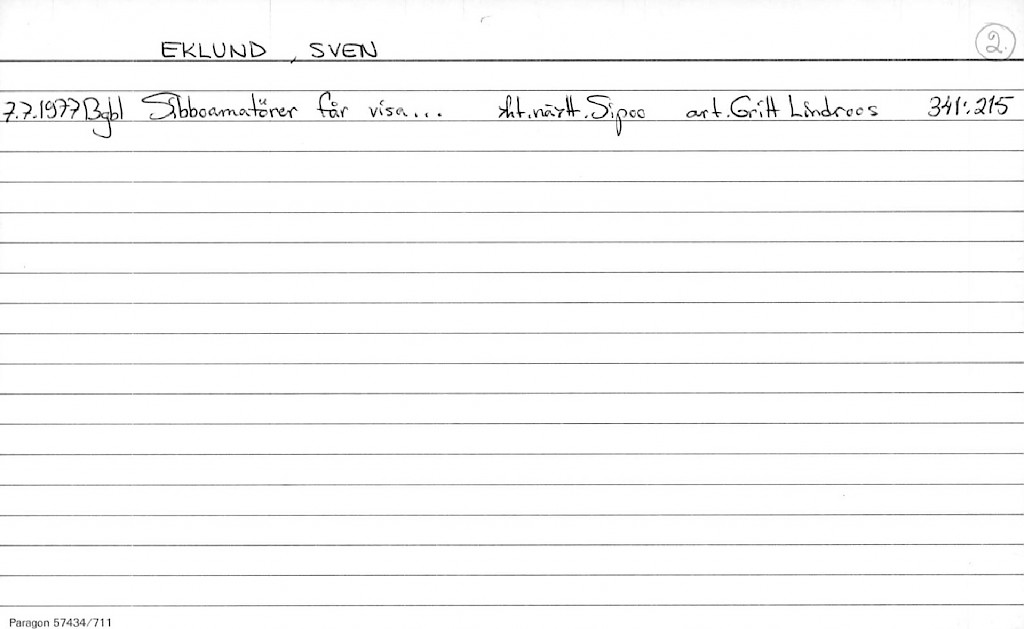 EKLUND, SVEN 2.
7.7.1977 Bgbl Sibboamatörer får visa... yht.näytt. Sipoo art. Gritt Lindroos 341:215
Paragon 57434/711